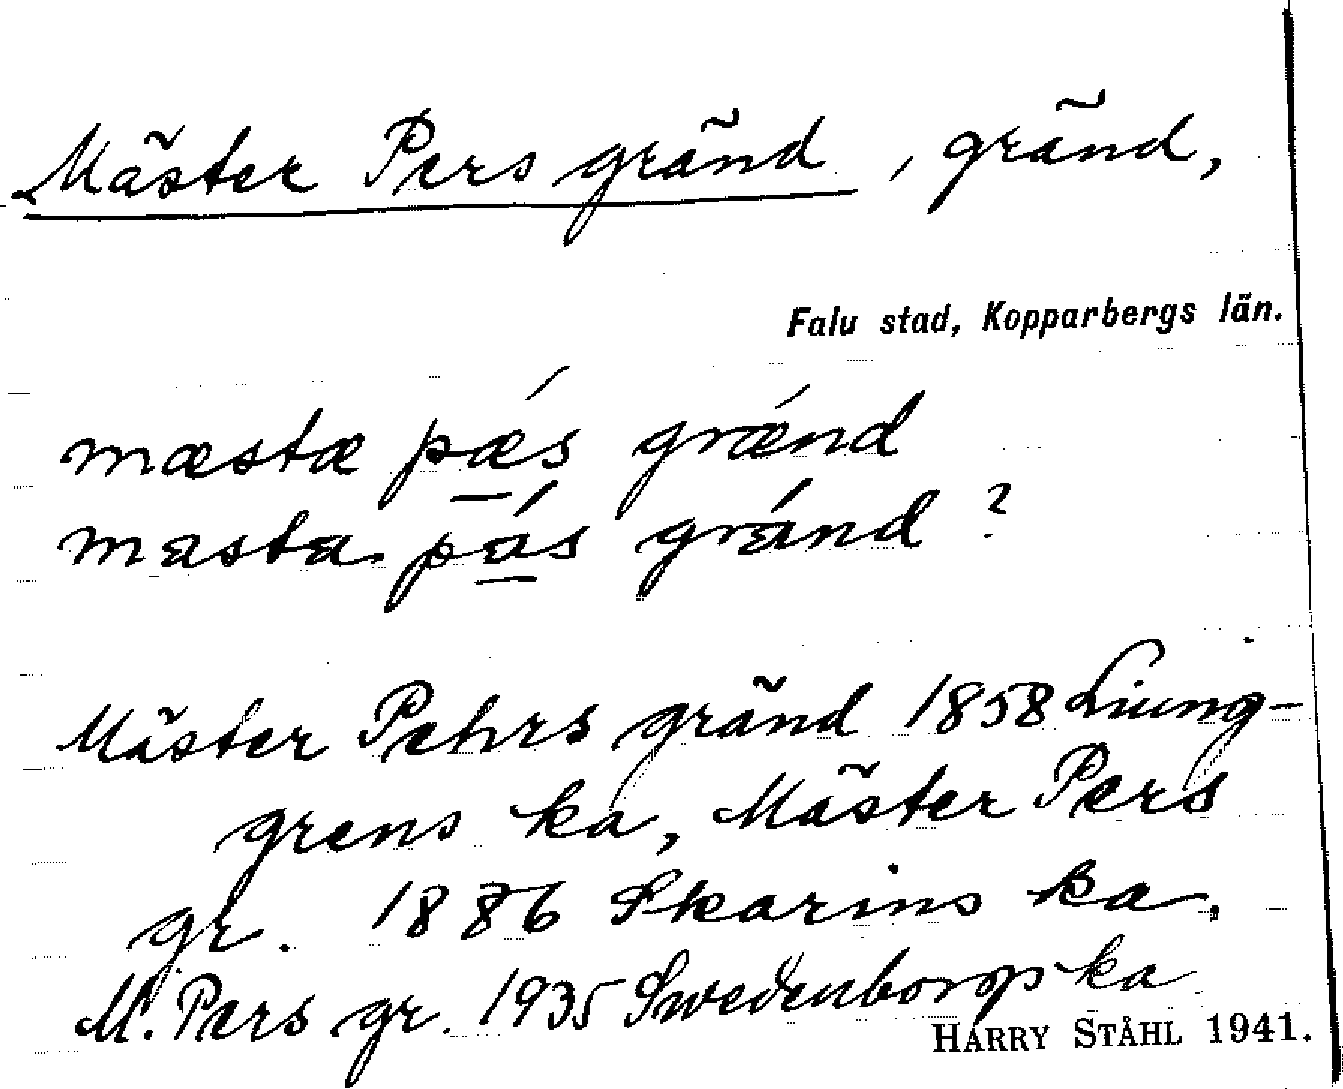 Mäster Pers gränd, gränd,
Falu stad, Kopparbergs län.
mæstæ pǽs grænd
masta pás gránd?
Mäster Pehrs gränd 1858 Liung-
grens ka, Mäster Pers
gr. 1886 Skarins ka,
M. Pers gr. 1935 Swedenborgs ka
HARRY STÅHL 1941.